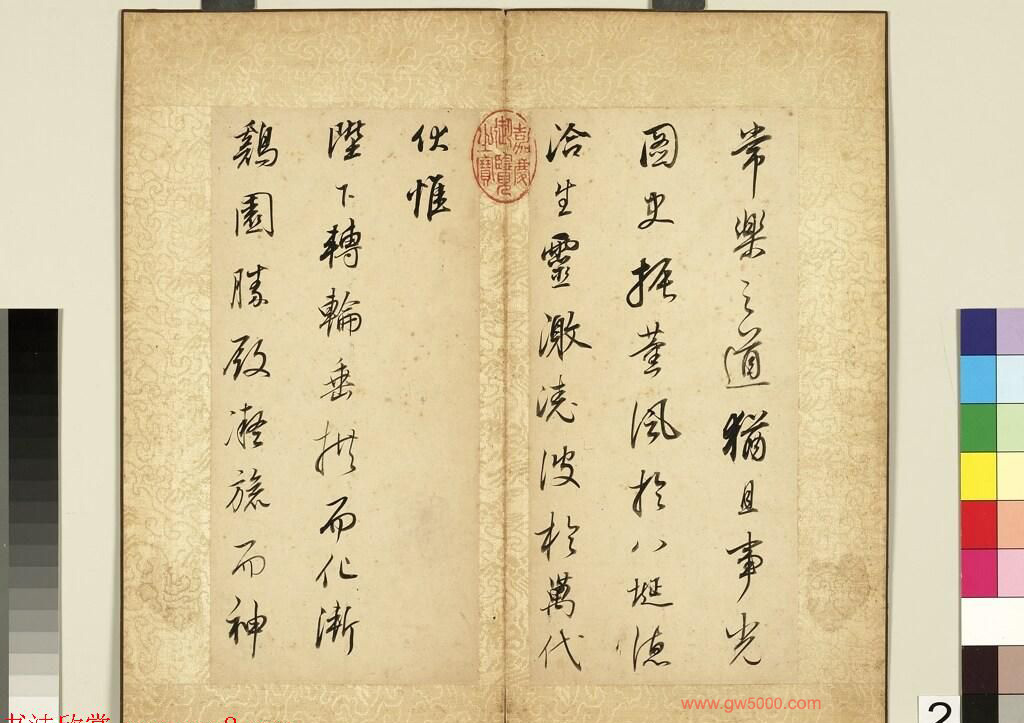 常樂之道猶且事光
圖史振薰風於八埏德
洽生靈激澆波於萬代
伏惟
陛下轉輪垂拱而化漸
鷄園勝殿凝旒而神
嘉慶御覽之寶
www.gw5000.com
书法欣赏
2